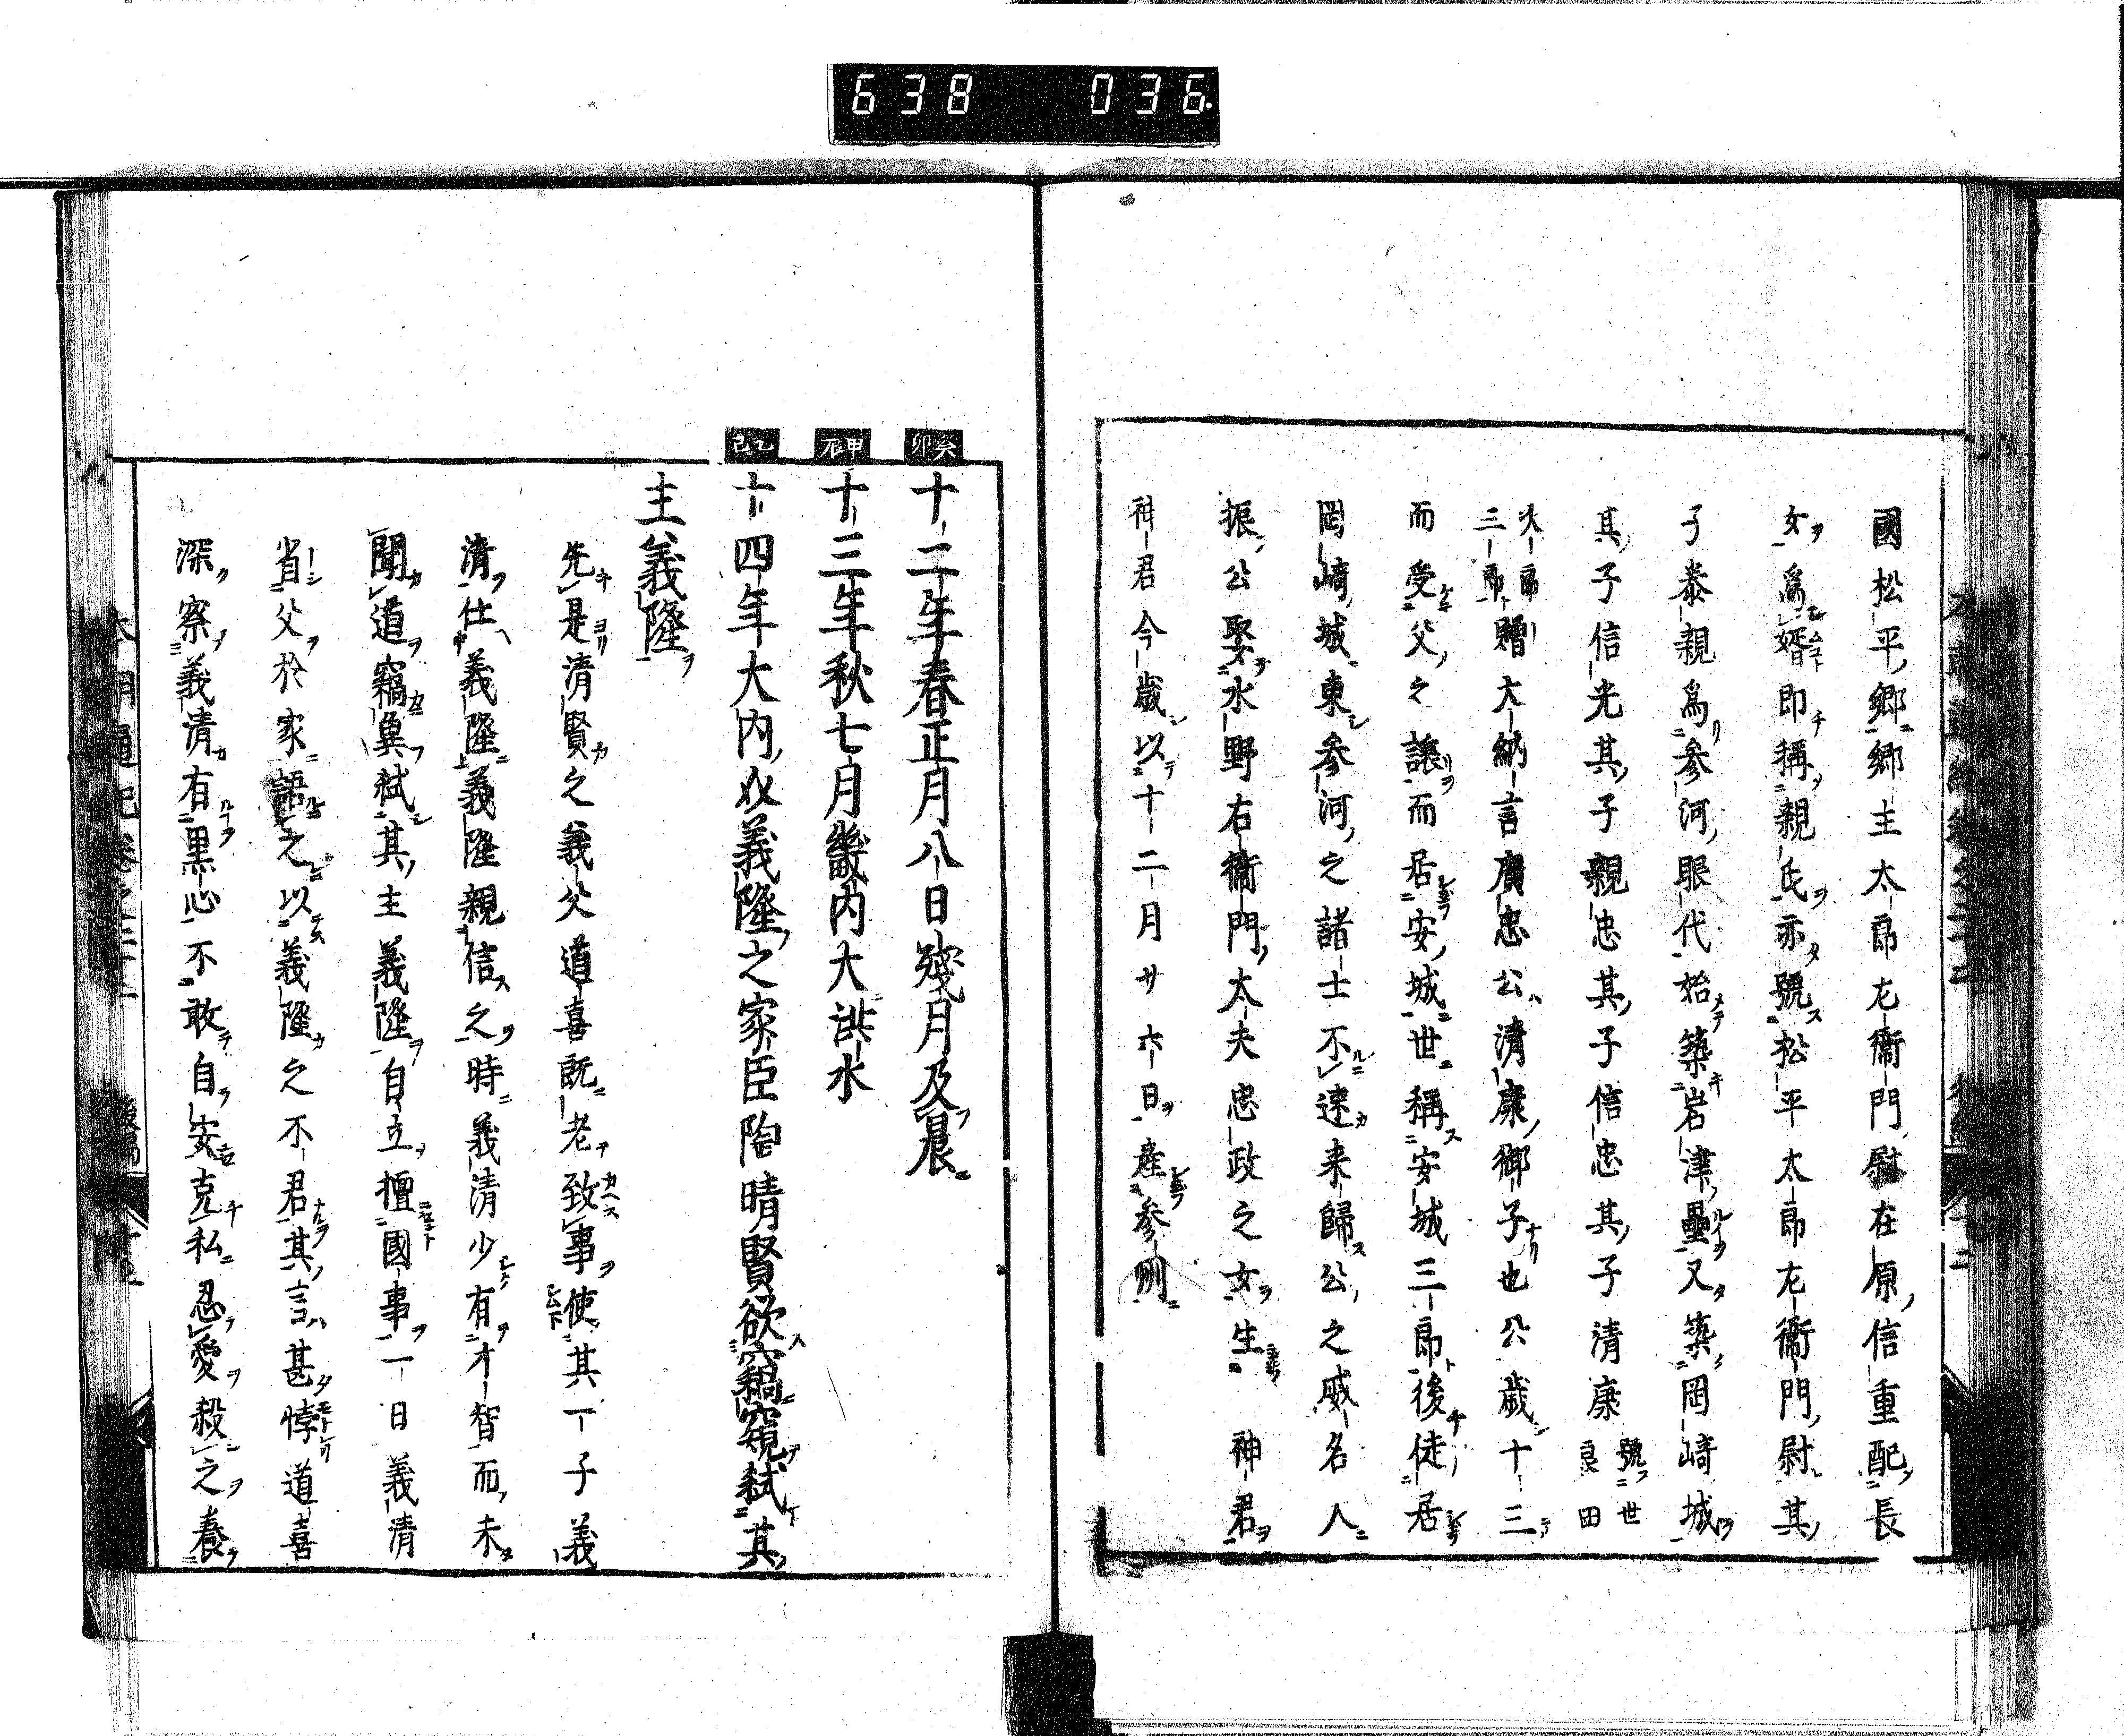 638 036
國松平郷郷主太郎左衞門尉在原信重配長
女爲婿即稱親氏亦號松平太郎左衞門尉其
子泰親爲參河眼代始築岩津壘又築岡﨑城
其子信光其子親忠其子信忠其子清康號世良田
次郎三郎贈大納言廣忠公清康御子也公歳十三
而受父之讓而居安城世稱安城三郎後徒居
岡﨑城東參河之諸士不速來歸公之威名人
振公娶水野右衞門太夫忠政之女生　神君
神君今歳以十二月廿六日産參州
癸卯
十二年春正月八日殘月及晨
甲辰
十三年秋七月畿内大洪水
乙巳
十四年大内義隆之家臣陶晴賢欲竊窺弑其
主義隆
先是清賢之義父道喜既老致事使其一子義
清仕義隆義隆親信之時義清少有才智而未
聞道竊冀弑其主義隆自立擅國事一日義清
省父於家語之以義隆之不君其言甚悖道喜
深察義清有黒心不敢自安克私忍愛殺之養